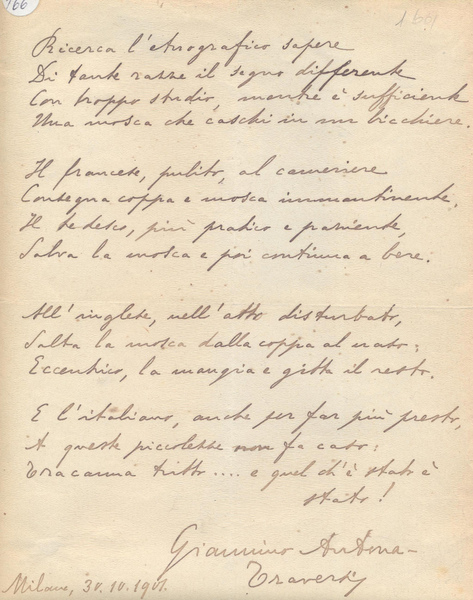 166
160
Ricerca l'etnografico sapere
Di tante razze il segno differente
Con troppo studio, mentre è sufficiente
Una mosca che caschi in un bicchiere.
Il francese, pulito, al cameriere
Consegna coppa e mosca immantinente,
Il tedesco, più pratico e paziente,
Salva la mosca e poi continua a bere.
All'inglese, nell'atto disturbato,
Salta la mosca dalla coppa al naso:
Eccentrico, la mangia e gitta il resto.
E l'italiano, anche per far più presto,
A queste piccolezze non fa caso:
Tracanna tutto .... e quel ch'è stato è
stato!
Giannino Antona-
Traversi
Milano, 30.10.1901.